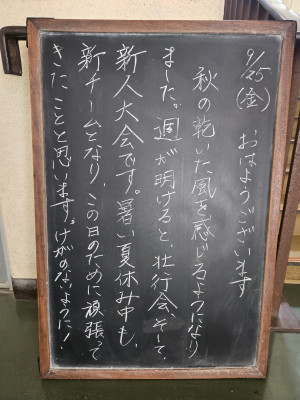 9/25(金)
おはようございます
秋の乾いた風を感じるようになり
ました。週が明けると、壮行会、そして、
新人大会です。暑い夏休み中も、
新チームとなり、この日のために頑張って
きたことと思います。けがのないように!